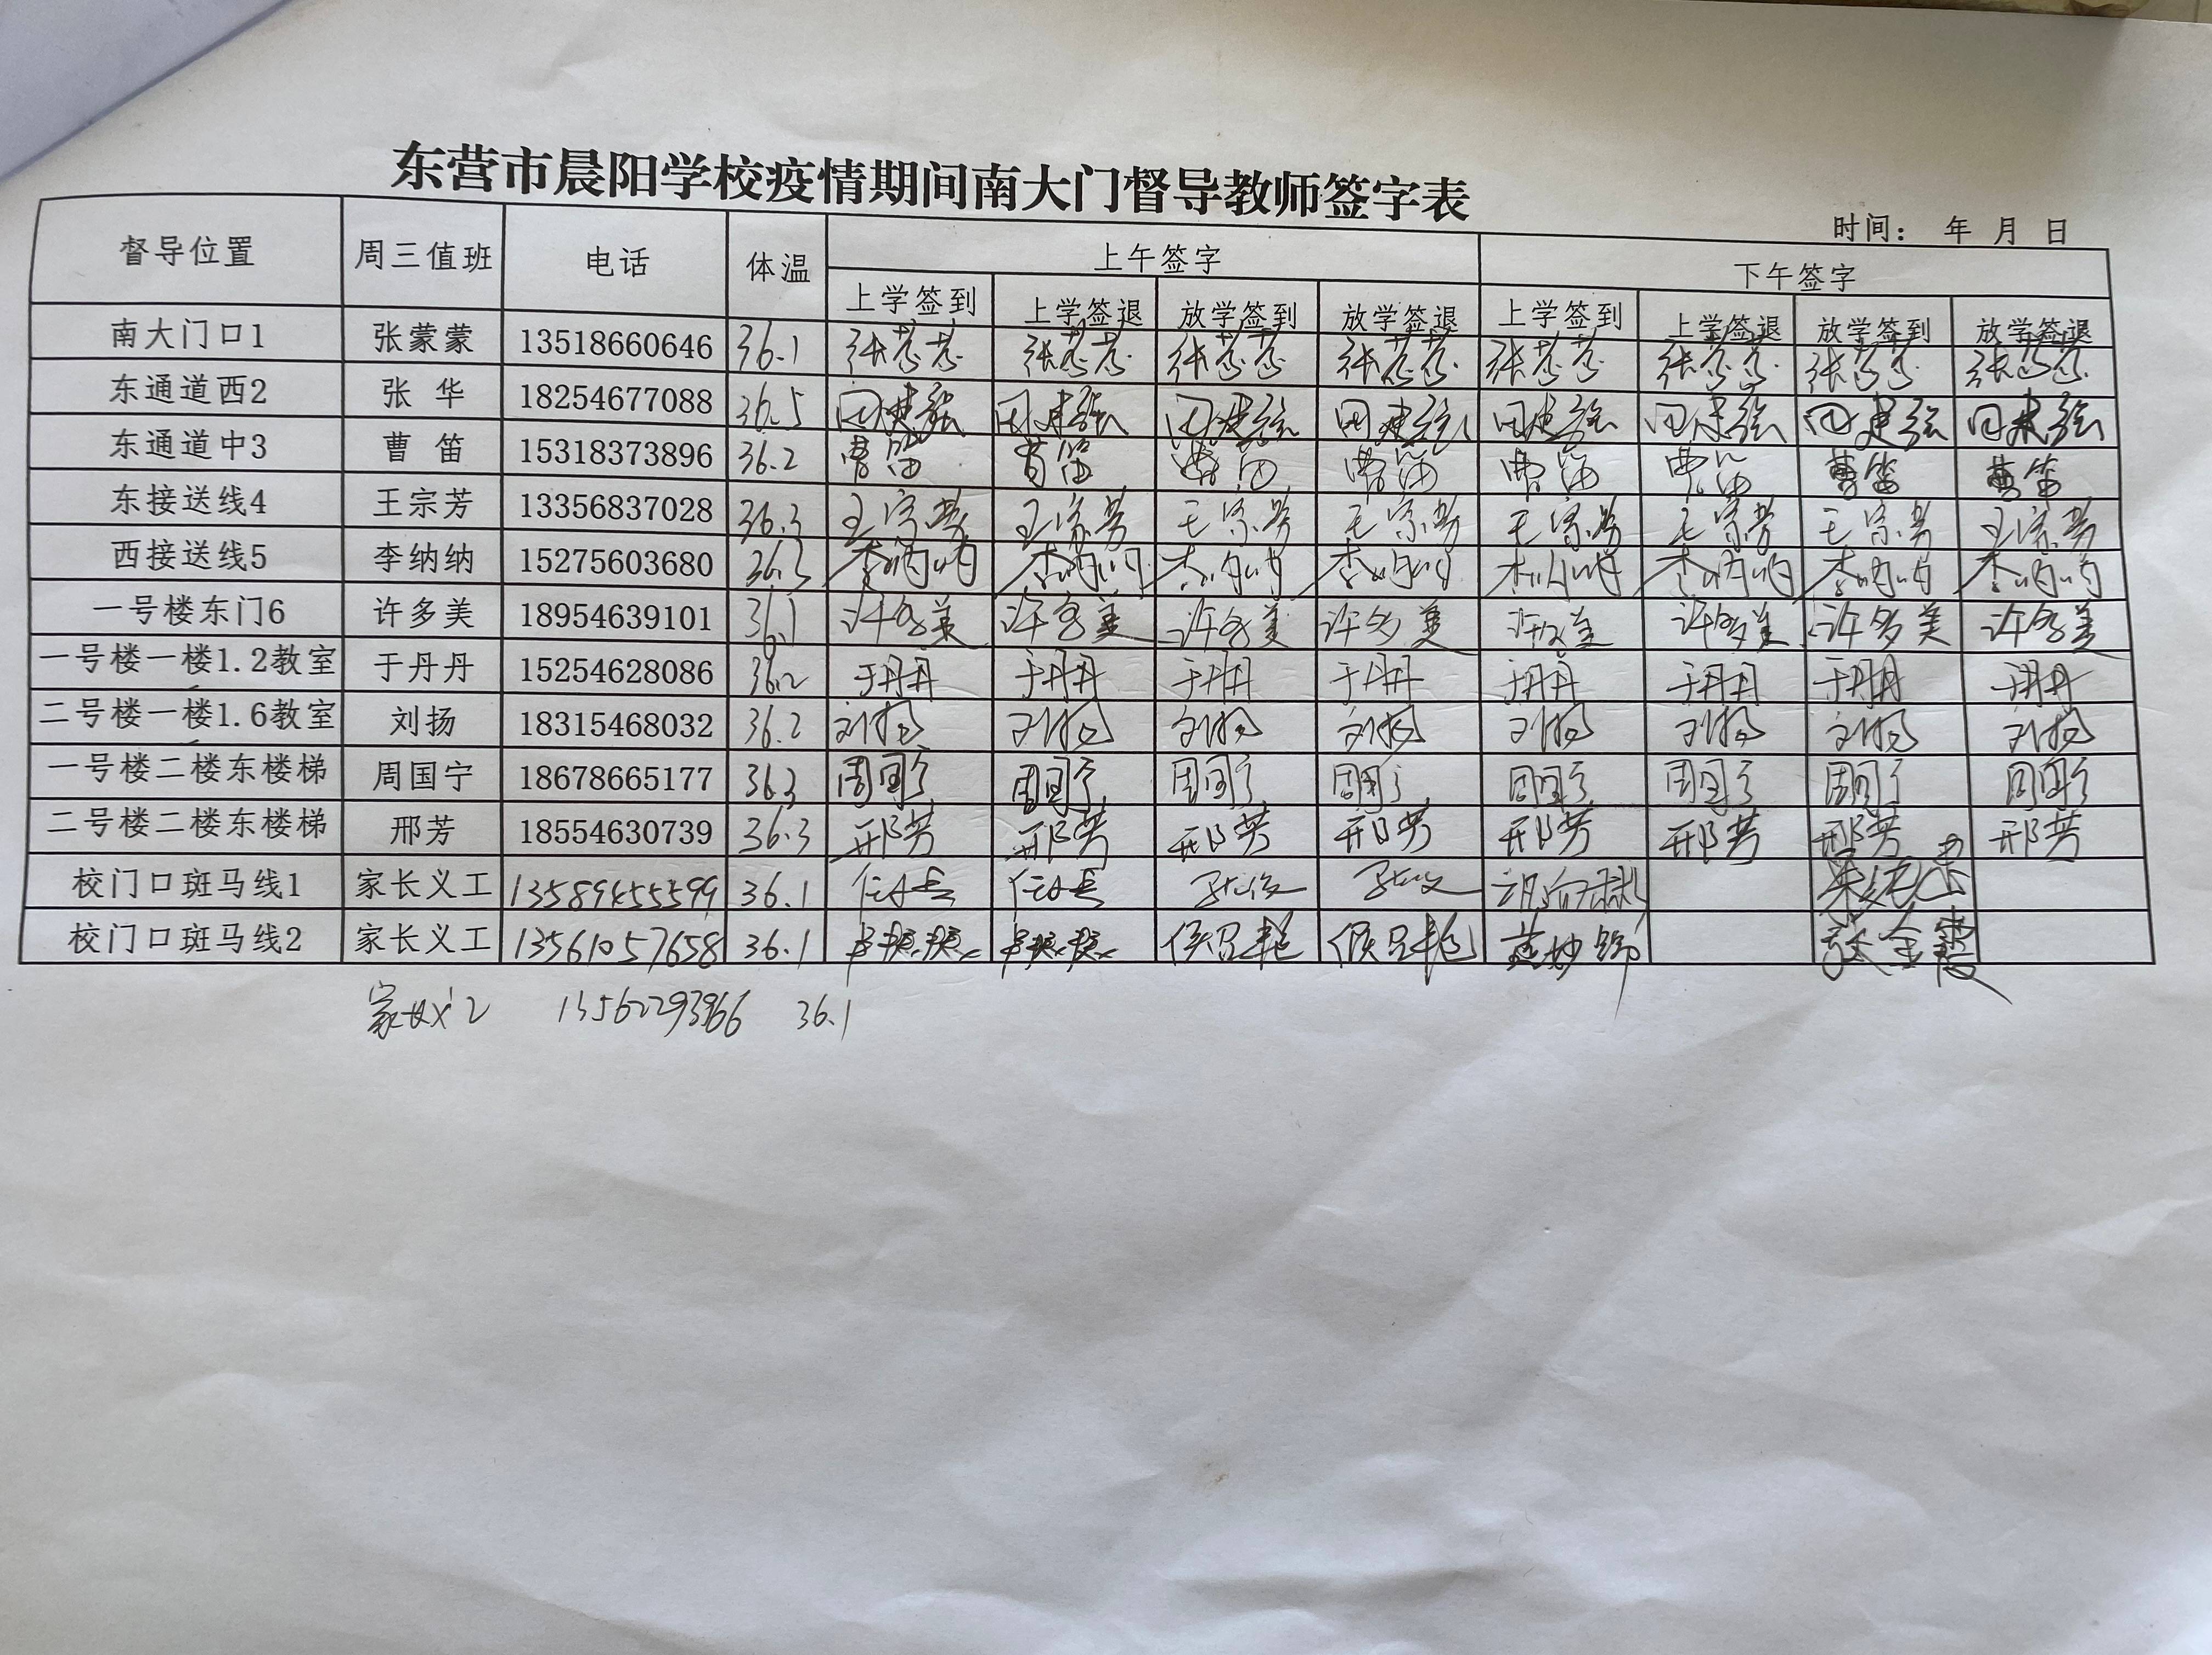 东营市晨阳学校疫情期间南大门督导教师签字表
时间： 年 月 日
督导位置 周三值班 电话 体温 上午签字 下午签字
上学签到 上学签退 放学签到 放学签退 上学签到 上学签退 放学签到 放学签退
南大门口1 张蒙蒙 13518660646 36.1
东通道西2 张 华 18254677088 36.5 田建强 田建强 田建强 田建强 田建强 田建强 田建强 田建强
东通道中3 曹 笛 15318373896 36.2 曹笛 曹笛 曹笛 曹笛 曹笛 曹笛 曹笛 曹笛
东接送线4 王宗芳 13356837028 36.3 王宗芳 王宗芳 王宗芳 王宗芳 王宗芳 王宗芳 王宗芳 王宗芳
西接送线5 李纳纳 15275603680 36.3 李纳纳 李纳纳 李纳纳 李纳纳 李纳纳 李纳纳 李纳纳 李纳纳
一号楼东门6 许多美 18954639101 36.1 许多美 许多美 许多美 许多美 许多美 许多美 许多美 许多美
一号楼一楼1.2教室 于丹丹 15254628086 36.2 于丹丹 于丹丹 于丹丹 于丹丹 于丹丹 于丹丹 于丹丹 于丹丹
二号楼一楼1.6教室 刘扬 18315468032 36.2 刘扬 刘扬 刘扬 刘扬 刘扬 刘扬 刘扬 刘扬
一号楼二楼东楼梯 周国宁 18678665177 36.3 周国宁 周国宁 周国宁 周国宁 周国宁 周国宁 周国宁 周国宁
二号楼二楼东楼梯 邢芳 18554630739 36.3 邢芳 邢芳 邢芳 邢芳 邢芳 邢芳 邢芳 邢芳
校门口斑马线1 家长义工 13589455599 36.1
校门口斑马线2 家长义工 13561057658 36.1 张金霞
36.1